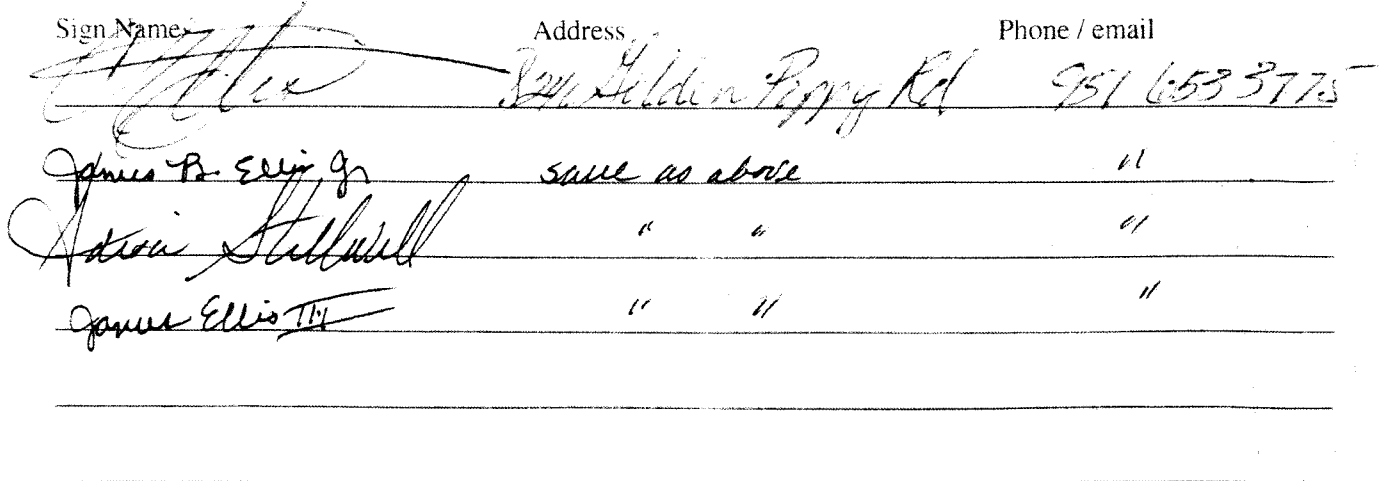 Sign Name Address Phone / email
Golden Poppy Rd 951 653 3775
James B. Ellis Jr same as above "
Stillwell " " "
James Ellis III " " "